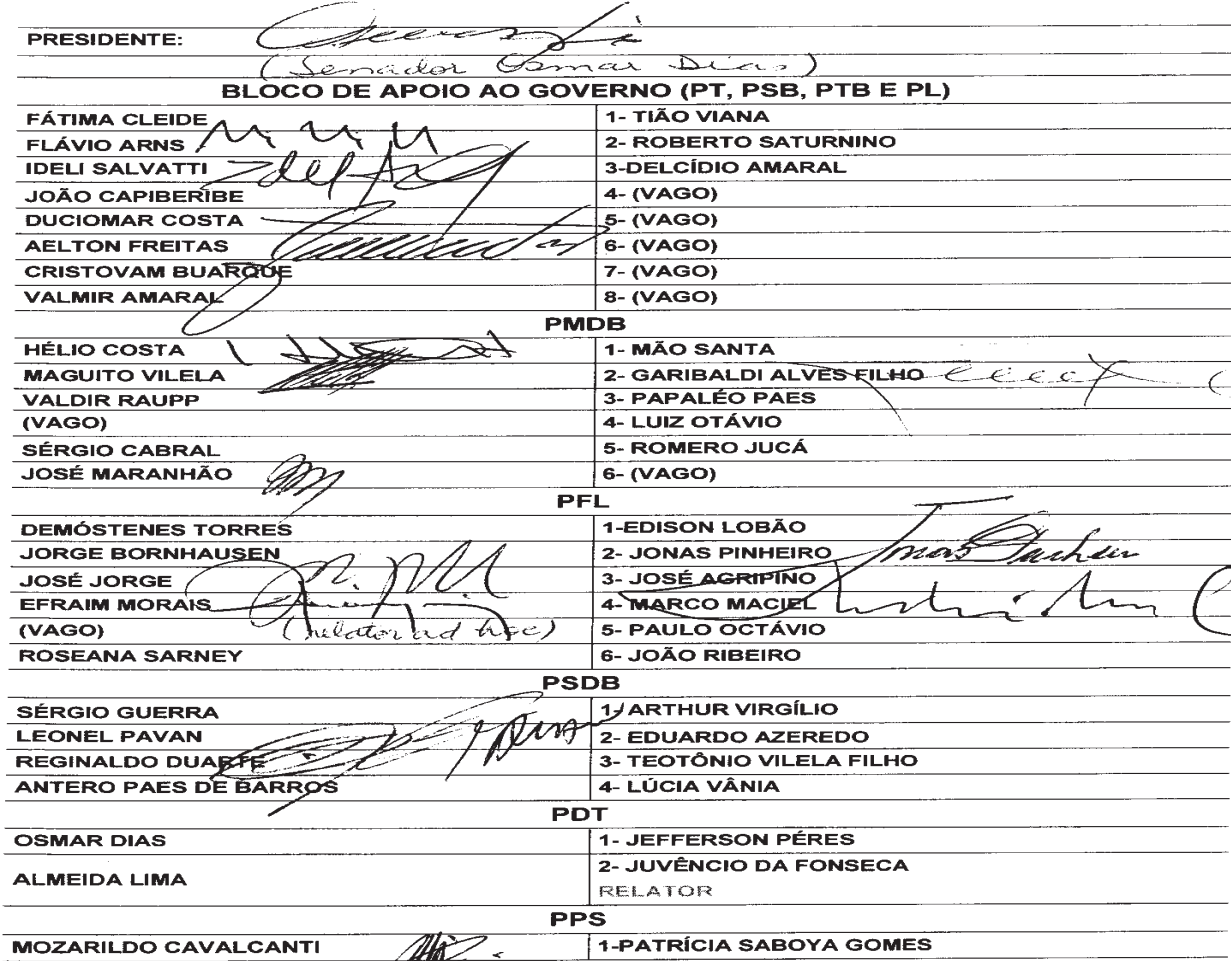 PRESIDENTE:
(Senador Osmar Dias)
BLOCO DE APOIO AO GOVERNO (PT, PSB, PTB E PL)
FÁTIMA CLEIDE 1- TIÃO VIANA
FLÁVIO ARNS 2- ROBERTO SATURNINO
IDELI SALVATTI 3-DELCÍDIO AMARAL
JOÃO CAPIBERIBE 4- (VAGO)
DUCIOMAR COSTA 5- (VAGO)
AELTON FREITAS 6- (VAGO)
CRISTOVAM BUARQUE 7- (VAGO)
VALMIR AMARAL 8- (VAGO)
PMDB
HÉLIO COSTA 1- MÃO SANTA
MAGUITO VILELA 2- GARIBALDI ALVES FILHO
VALDIR RAUPP 3- PAPALÉO PAES
(VAGO) 4- LUIZ OTÁVIO
SÉRGIO CABRAL 5- ROMERO JUCÁ
JOSÉ MARANHÃO 6- (VAGO)
PFL
DEMÓSTENES TORRES 1-EDISON LOBÃO
JORGE BORNHAUSEN 2- JONAS PINHEIRO Jonas Pinheiro
JOSÉ JORGE 3- JOSÉ AGRIPINO
EFRAIM MORAIS 4- MARCO MACIEL
(VAGO) (relator ad hoc) 5- PAULO OCTÁVIO
ROSEANA SARNEY 6- JOÃO RIBEIRO
PSDB
SÉRGIO GUERRA 1- ARTHUR VIRGÍLIO
LEONEL PAVAN 2- EDUARDO AZEREDO
REGINALDO DUARTE 3- TEOTÔNIO VILELA FILHO
ANTERO PAES DE BARROS 4- LÚCIA VÂNIA
PDT
OSMAR DIAS 1- JEFFERSON PÉRES
ALMEIDA LIMA 2- JUVÊNCIO DA FONSECA
RELATOR
PPS
MOZARILDO CAVALCANTI 1-PATRÍCIA SABOYA GOMES